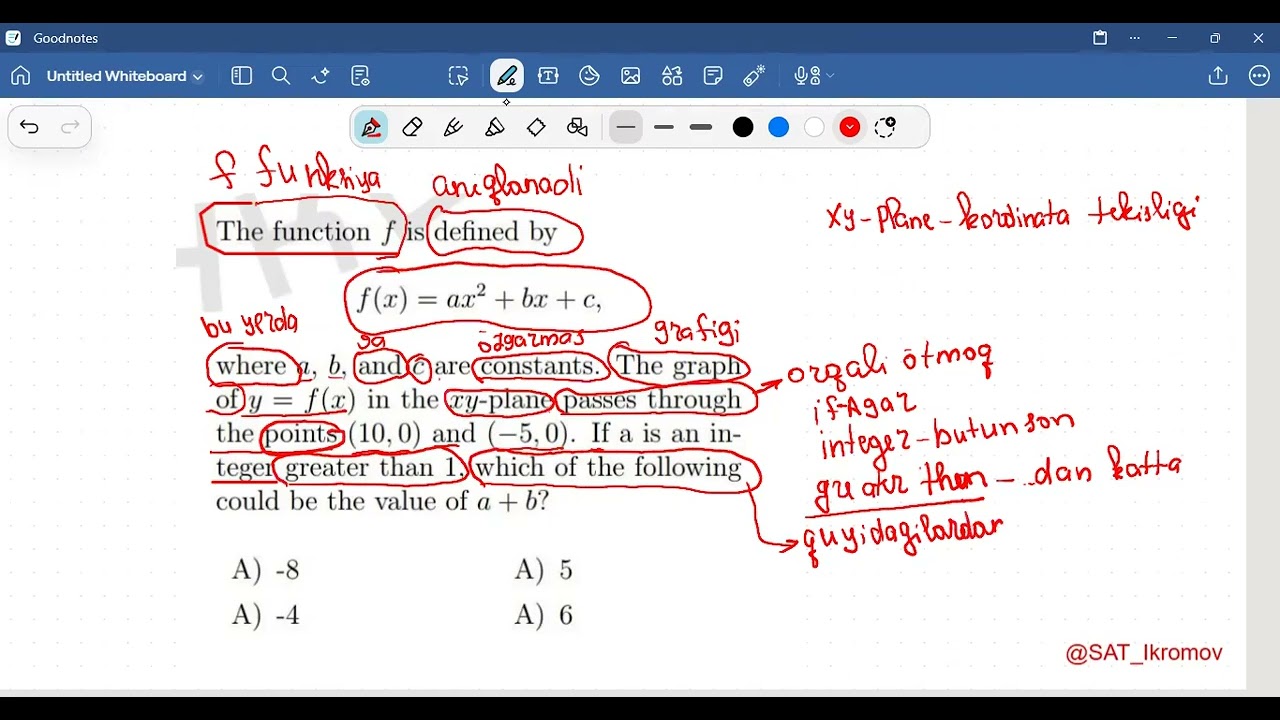 Goodnotes
Untitled Whiteboard
f funksiya
aniqlanadi
xy-plane-koordinata tekisligi
The function f is defined by
f(x) = ax² + bx + c,
bu yerda
va
o'zgarmas
grafigi
where a, b, and c are constants. The graph
of y = f(x) in the xy-plane passes through
the points (10, 0) and (−5, 0). If a is an in-
teger greater than 1, which of the following
could be the value of a + b?
orqali ötmoq
if-Agar
integer-butun son
than - ..dan katta
quyidagilardan
A) -8
A) 5
A) -4
A) 6
@SAT_Ikromov